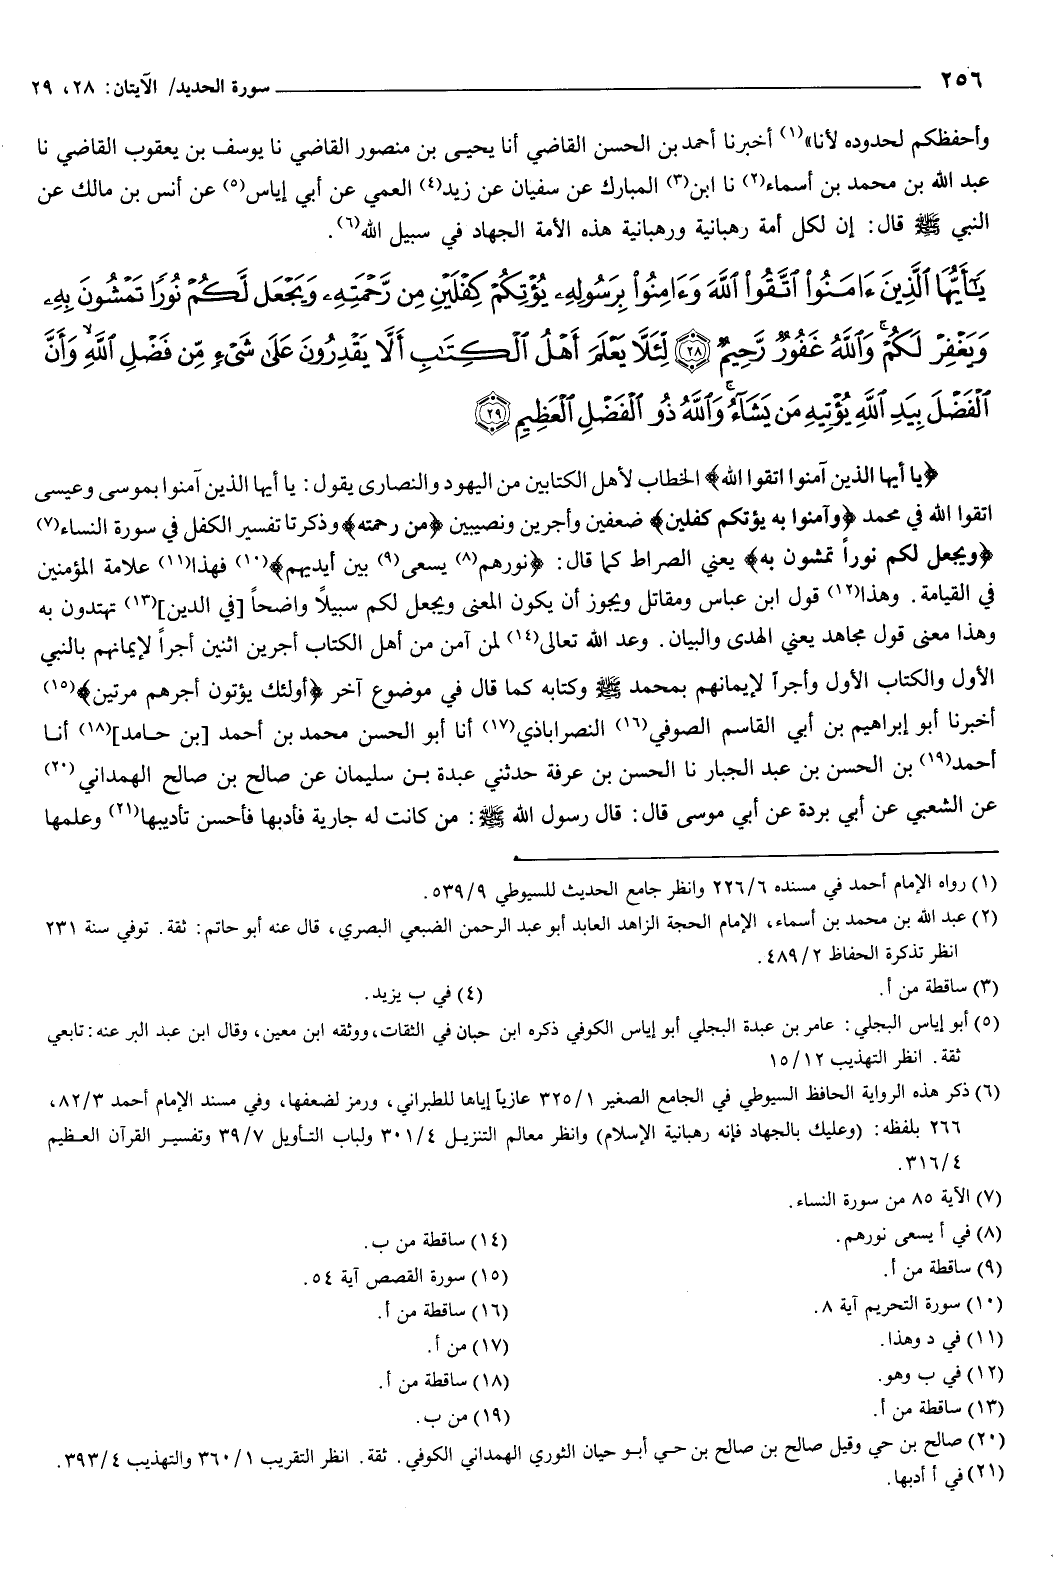 ٢٥٦ سورة الحديد/ الآيتان: ٢٨، ٢٩
وأحفظكم لحدوده لأنا»(١) أخبرنا أحمد بن الحسن القاضي أنا يحيى بن منصور القاضي نا يوسف بن يعقوب القاضي نا
عبد الله بن محمد بن أسماء(٢) نا ابن(٣) المبارك عن سفيان عن زيد(٤) العمي عن أبي إياس(٥) عن أنس بن مالك عن
النبي ﷺ قال: إن لكل أمة رهبانية ورهبانية هذه الأمة الجهاد في سبيل الله(٦).
يَٰٓأَيُّهَا ٱلَّذِينَ ءَامَنُواْ ٱتَّقُواْ ٱللَّهَ وَءَامِنُواْ بِرَسُولِهِۦ يُؤْتِكُمْ كِفْلَيْنِ مِن رَّحْمَتِهِۦ وَيَجْعَل لَّكُمْ نُورًا تَمْشُونَ بِهِۦ
وَيَغْفِرْ لَكُمْۚ وَٱللَّهُ غَفُورٌ رَّحِيمٌ ﴿٢٨﴾ لِّئَلَّا يَعْلَمَ أَهْلُ ٱلْكِتَٰبِ أَلَّا يَقْدِرُونَ عَلَىٰ شَىْءٍ مِّن فَضْلِ ٱللَّهِۙ وَأَنَّ
ٱلْفَضْلَ بِيَدِ ٱللَّهِ يُؤْتِيهِ مَن يَشَآءُۚ وَٱللَّهُ ذُو ٱلْفَضْلِ ٱلْعَظِيمِ ﴿٢٩﴾
﴿يا أيها الذين آمنوا اتقوا الله﴾ الخطاب لأهل الكتابين من اليهود والنصارى يقول: يا أيها الذين آمنوا بموسى وعيسى
اتقوا الله في محمد ﴿وآمنوا به يؤتكم كفلين﴾ ضعفين وأجرين ونصيبين ﴿من رحمته﴾ وذكرنا تفسير الكفل في سورة النساء(٧)
﴿ويجعل لكم نوراً تمشون به﴾ يعني الصراط كما قال: ﴿نورهم(٨) يسعى(٩) بين أيديهم﴾(١٠) فهذا(١١) علامة المؤمنين
في القيامة. وهذا(١٢) قول ابن عباس ومقاتل ويجوز أن يكون المعنى ويجعل لكم سبيلاً واضحاً [في الدين](١٣) تهتدون به
وهذا معنى قول مجاهد يعني الهدى والبيان. وعد الله تعالى(١٤) لمن آمن من أهل الكتاب أجرين اثنين أجراً لإيمانهم بالنبي
الأول والكتاب الأول وأجراً لإيمانهم بمحمد ﷺ وكتابه كما قال في موضوع آخر ﴿أولئك يؤتون أجرهم مرتين﴾(١٥)
أخبرنا أبو إبراهيم بن أبي القاسم الصوفي(١٦) النصراباذي(١٧) أنا أبو الحسن محمد بن أحمد [بن حامد](١٨) أنا
أحمد(١٩) بن الحسن بن عبد الجبار نا الحسن بن عرفة حدثني عبدة بن سليمان عن صالح بن صالح الهمداني(٢٠)
عن الشعبي عن أبي بردة عن أبي موسى قال: قال رسول الله ﷺ: من كانت له جارية فأدبها فأحسن تأديبها(٢١) وعلمها
(١) رواه الإمام أحمد في مسنده ٢٢٦/٦ وانظر جامع الحديث للسيوطي ٥٣٩/٩.
(٢) عبد الله بن محمد بن أسماء، الإمام الحجة الزاهد العابد أبو عبد الرحمن الضبعي البصري، قال عنه أبو حاتم: ثقة. توفي سنة ٢٣١
انظر تذكرة الحفاظ ٤٨٩/٢.
(٣) ساقطة من أ. (٤) في ب يزيد.
(٥) أبو إياس البجلي: عامر بن عبدة البجلي أبو إياس الكوفي ذكره ابن حبان في الثقات، ووثقه ابن معين، وقال ابن عبد البر عنه: تابعي
ثقة. انظر التهذيب ١٥/١٢
(٦) ذكر هذه الرواية الحافظ السيوطي في الجامع الصغير ٣٢٥/١ عازياً إياها للطبراني، ورمز لضعفها، وفي مسند الإمام أحمد ٨٢/٣،
٢٦٦ بلفظه: (وعليك بالجهاد فإنه رهبانية الإسلام) وانظر معالم التنزيل ٣٠١/٤ ولباب التأويل ٣٩/٧ وتفسير القرآن العظيم
٣١٦/٤.
(٧) الآية ٨٥ من سورة النساء.
(٨) في أ يسعى نورهم. (١٤) ساقطة من ب.
(٩) ساقطة من أ. (١٥) سورة القصص آية ٥٤.
(١٠) سورة التحريم آية ٨. (١٦) ساقطة من أ.
(١١) في د وهذا. (١٧) من أ.
(١٢) في ب وهو. (١٨) ساقطة من أ.
(١٣) ساقطة من أ. (١٩) من ب.
(٢٠) صالح بن حي وقيل صالح بن صالح بن حي أبو حيان الثوري الهمداني الكوفي. ثقة. انظر التقريب ٣٦٠/١ والتهذيب ٣٩٣/٤.
(٢١) في أ أدبها.